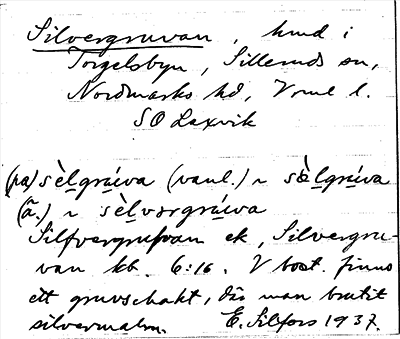 Silvergruvan, hmd i
Torgelsbyn, Silleruds sn,
Nordmarks hd, Vrml l.
SO Laxvik
(pa) sèlgrúva (vanl.) ~ sèlgrúva
(ä.) ~ sèlvərgrúva
Silfvergrufvan ek, Silvergru-
van kb. 6:16. V bost. finns
ett gruvschakt, där man brutit
silvermalm. E. Silfors 1937.